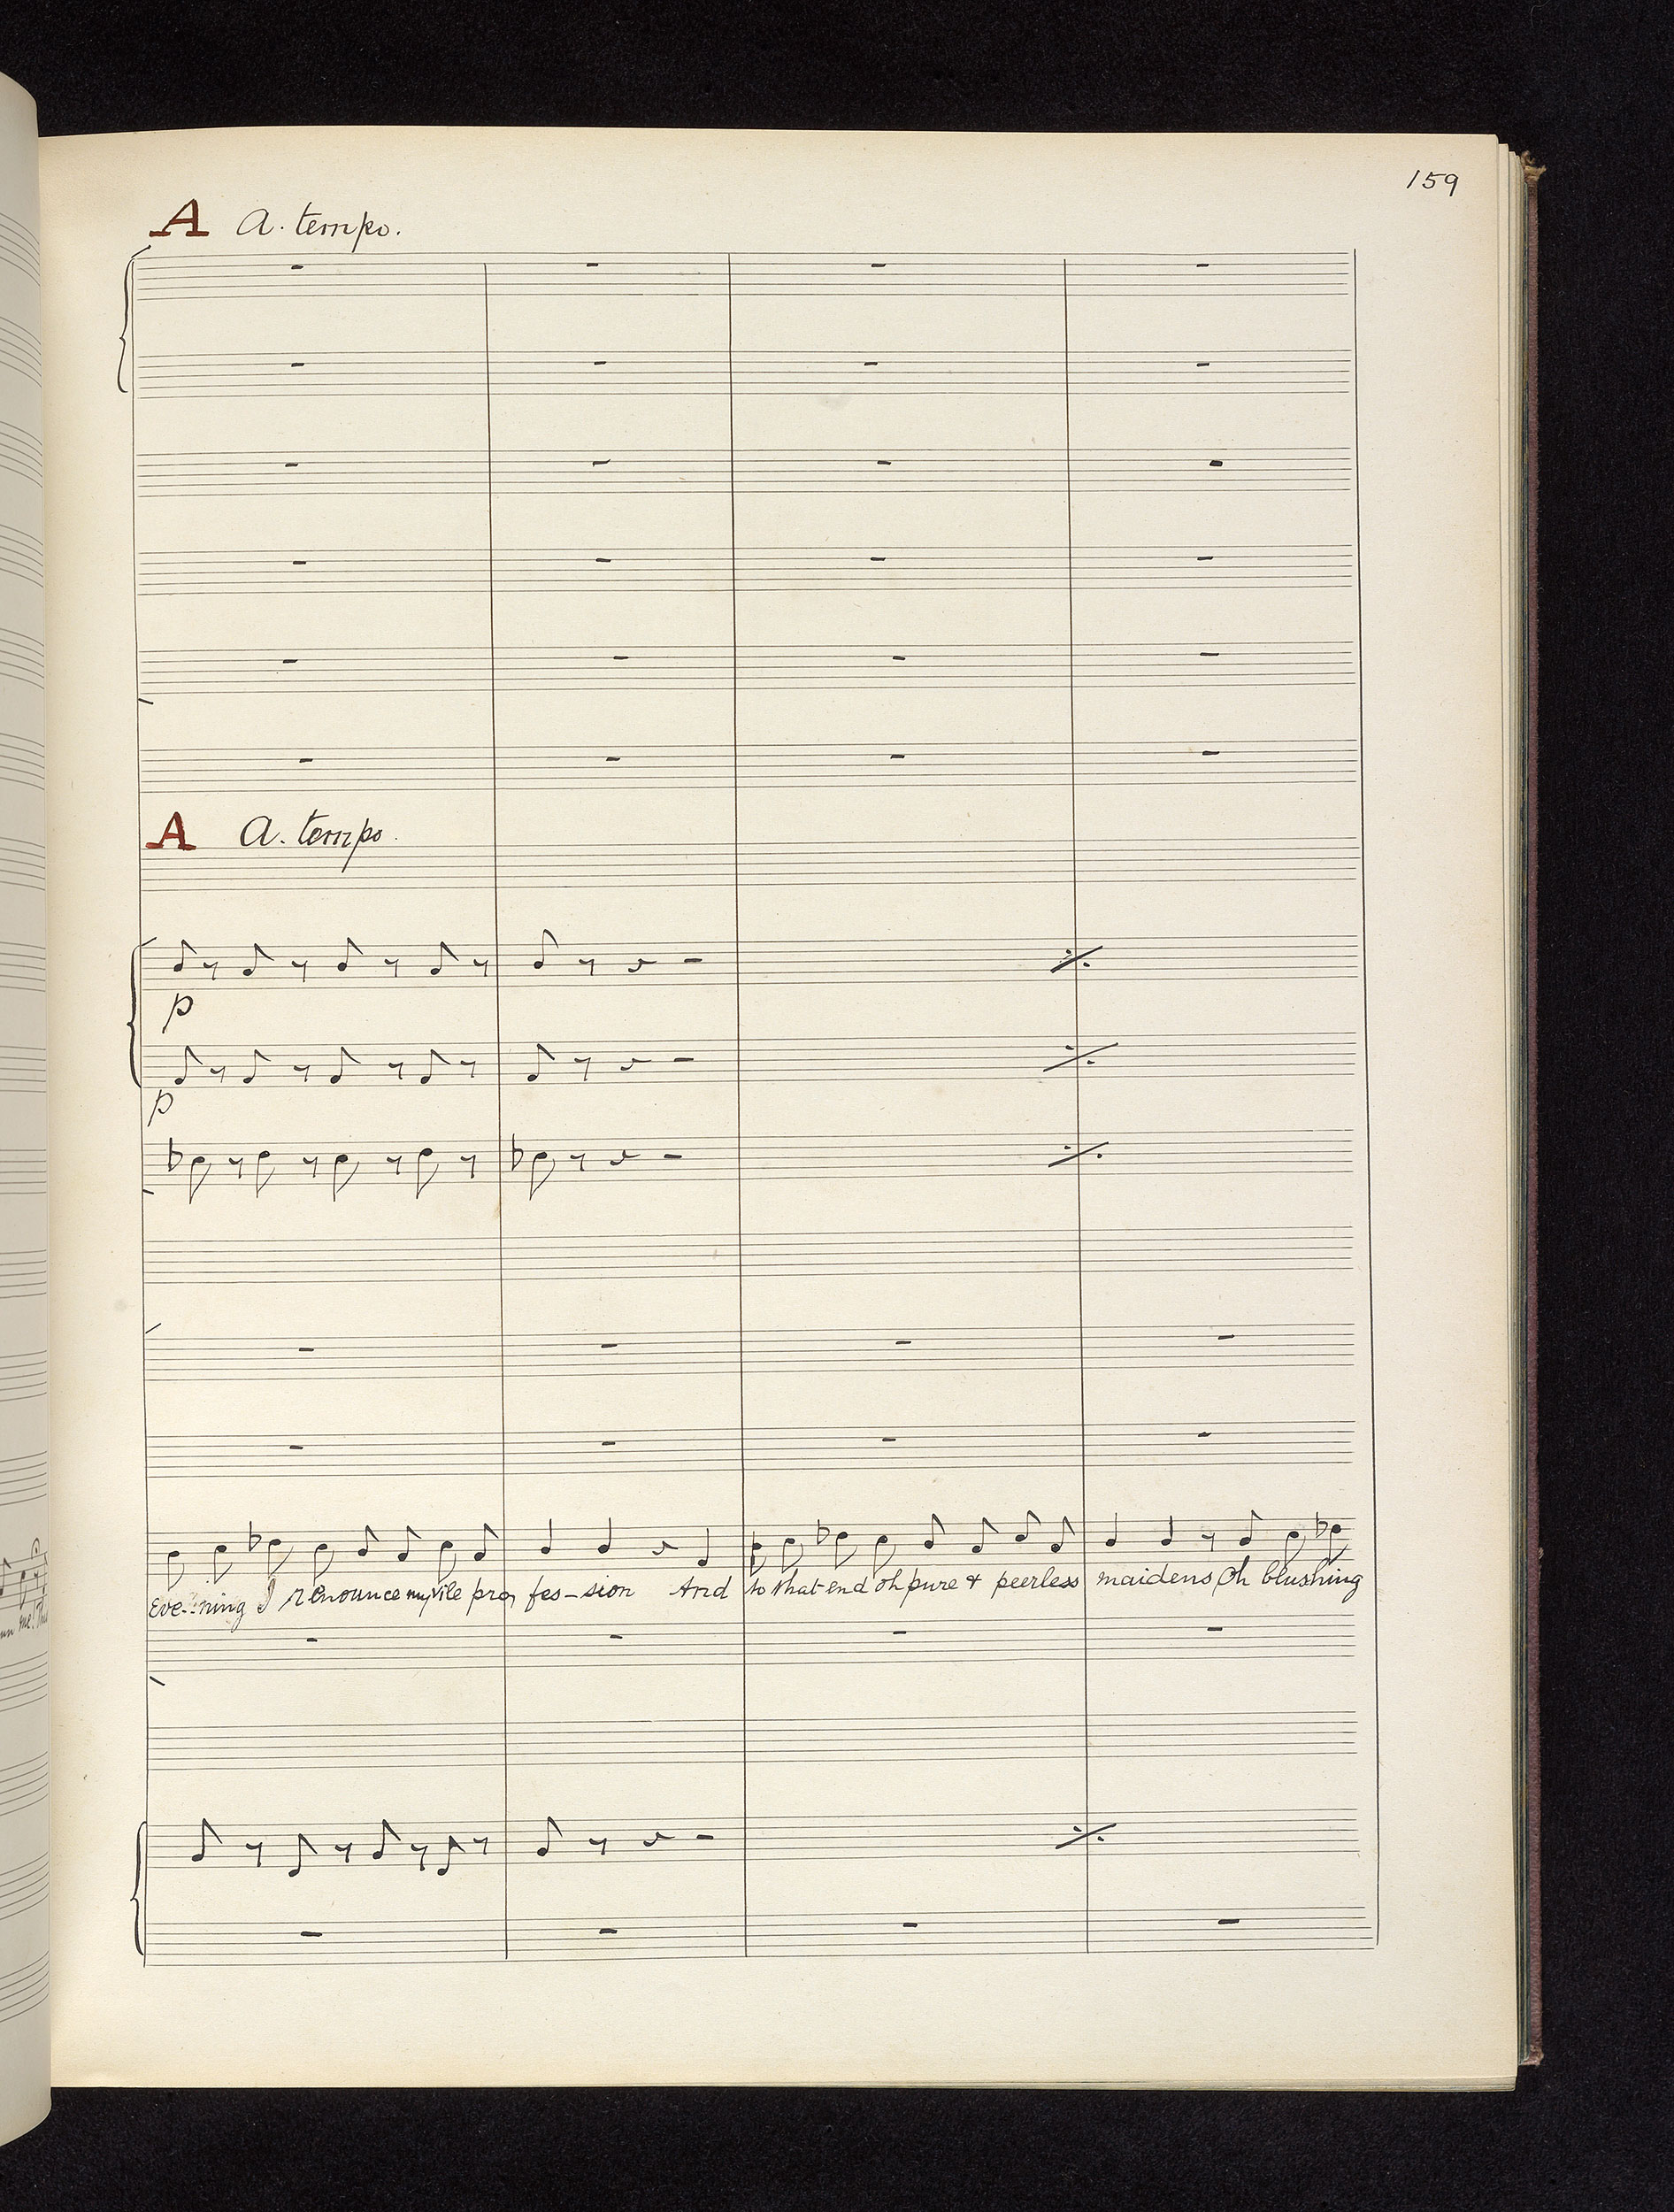 159
A a. tempo.
A a. tempo.
p
p
Eve--ning I renounce my vile pro fes-sion And to that end oh pure & peerless maidens Oh blushing
me! This